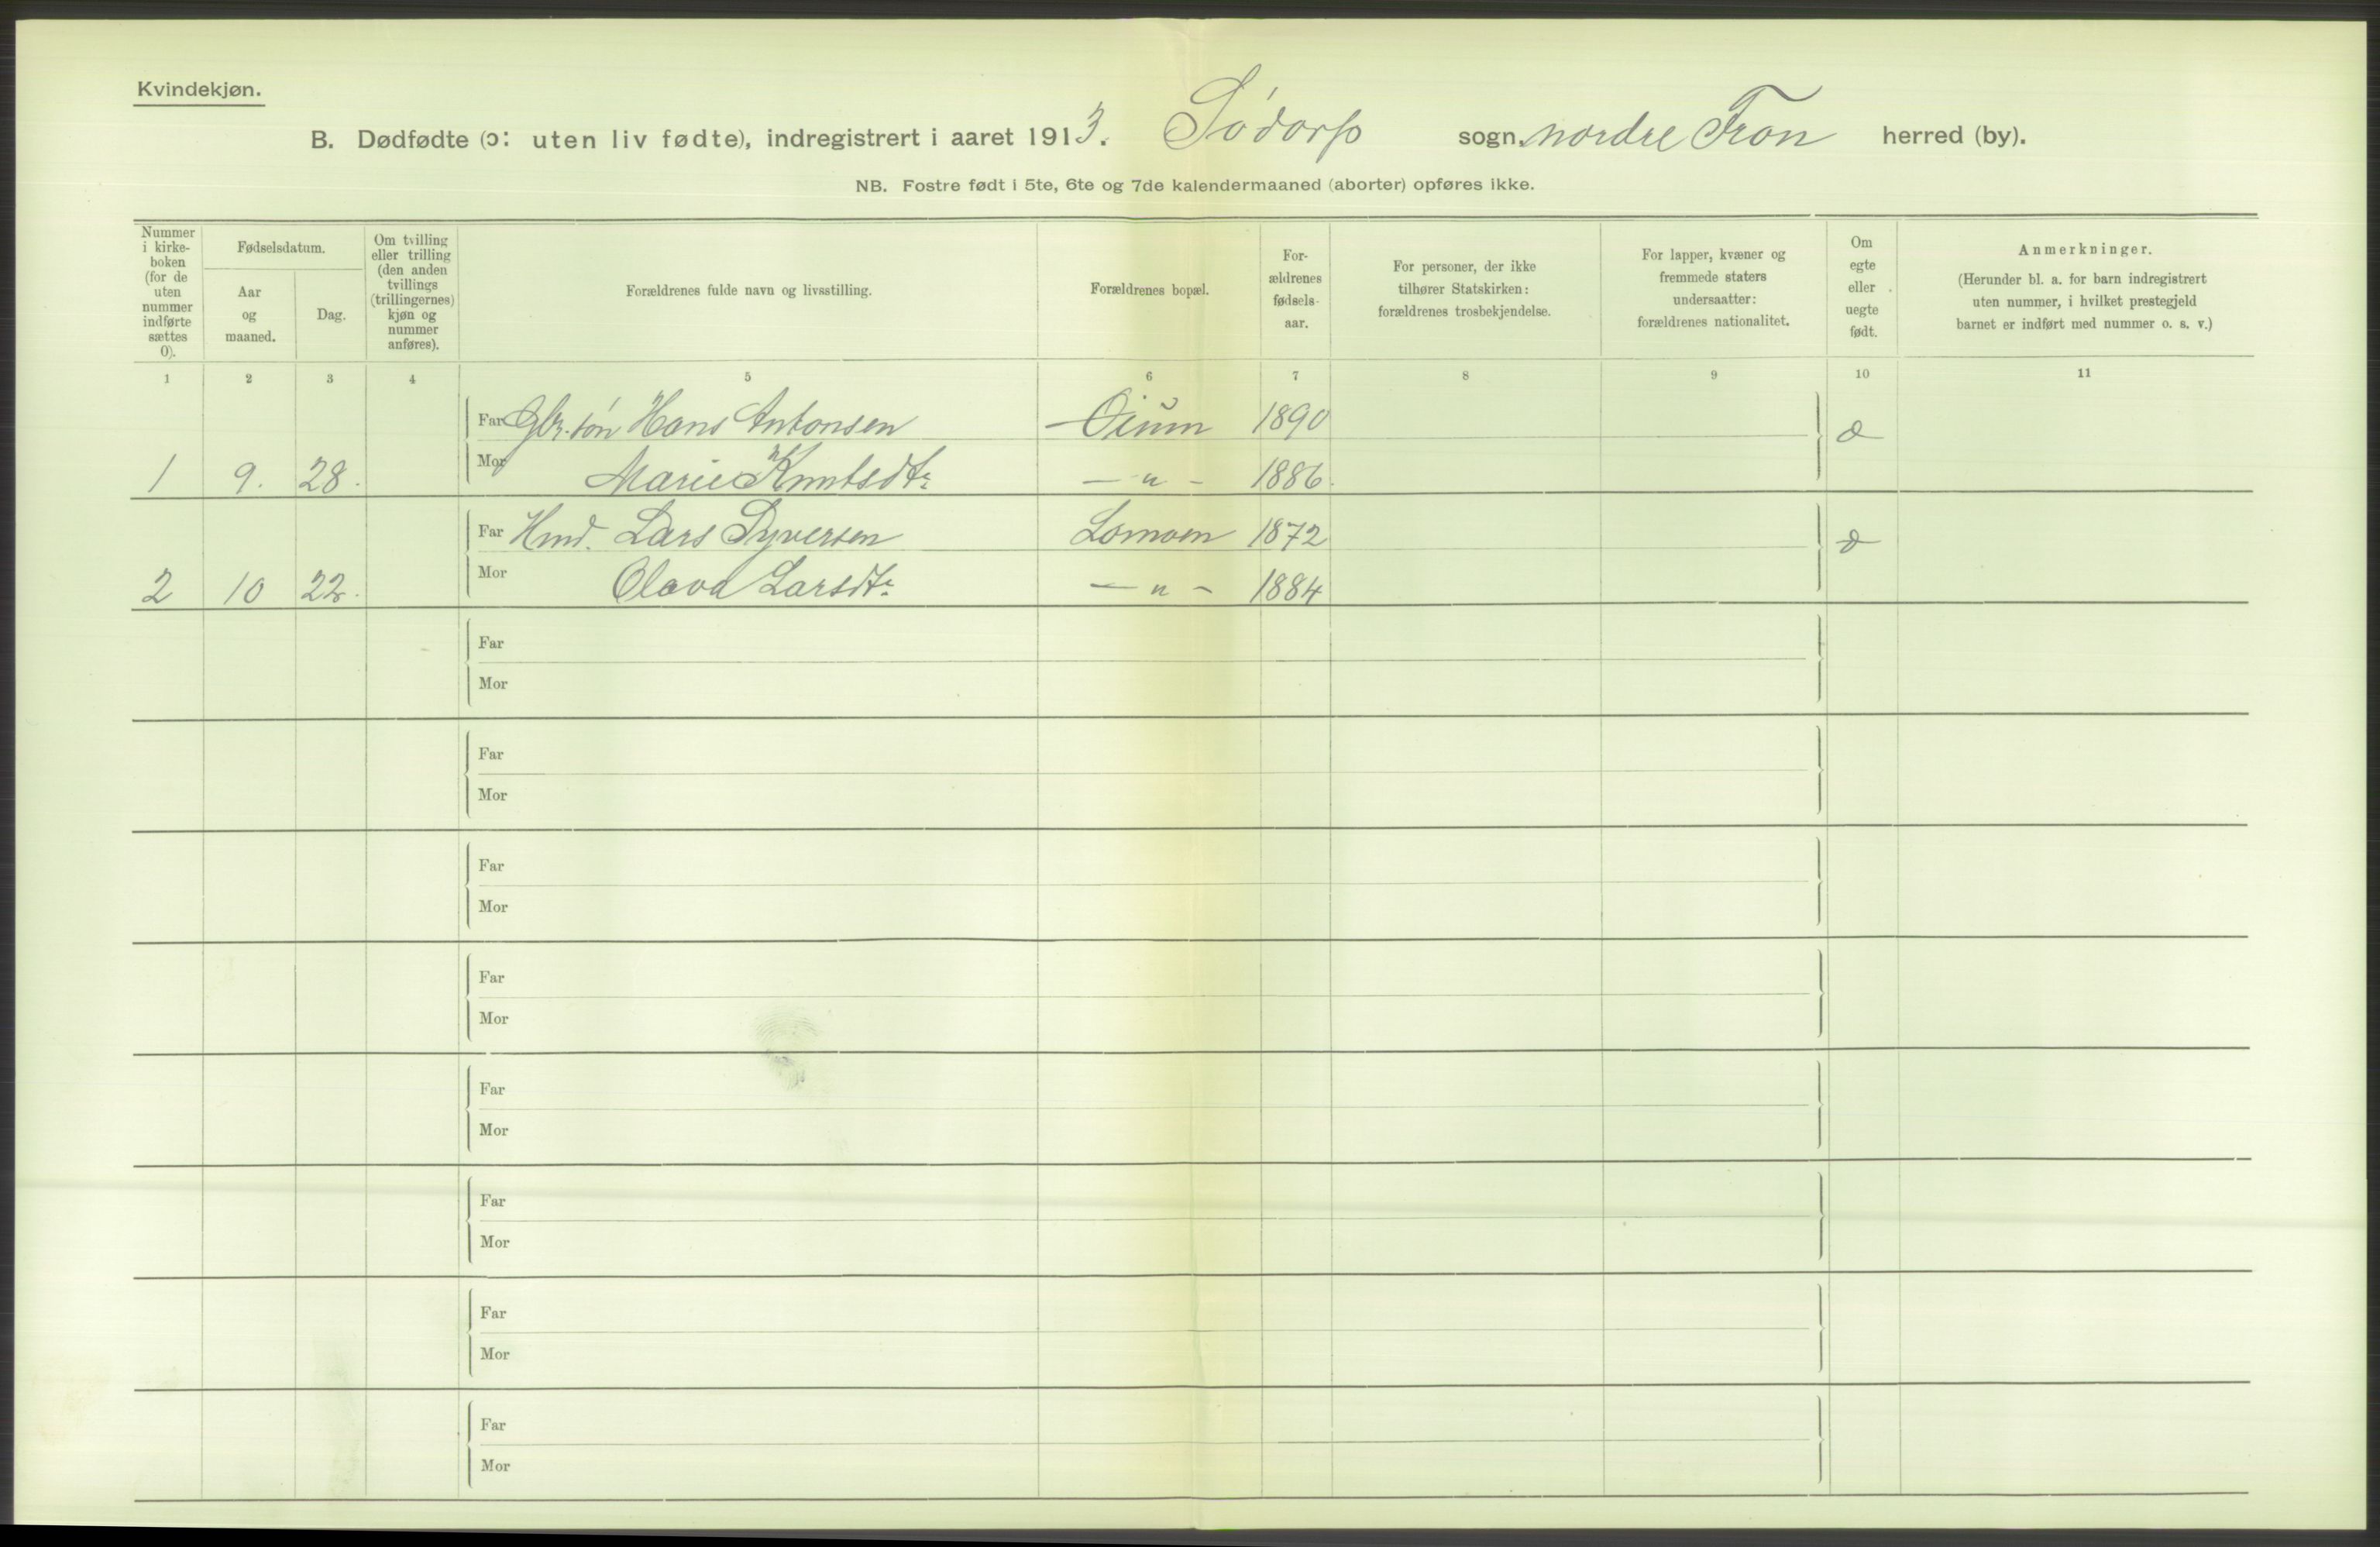 Kvindekjøn.
B. Dødfødte (ɔ: uten liv fødte), indregistrert i aaret 1913. Sødorp sogn, nordre Fron herred (by).
NB. Fostre født i 5te, 6te og 7de kalendermaaned (aborter) opføres ikke.
Nummer i kirke-boken (for de uten nummer indførte sættes 0).
Fødselsdatum.
Aar og maaned.
Dag.
Om tvilling eller trilling (den anden tvillings (trillingernes) kjøn og nummer anføres).
Forældrenes fulde navn og livsstilling.
Forældrenes bopæl.
For-ældrenes fødsels-aar.
For personer, der ikke tilhører Statskirken: forældrenes trosbekjendelse.
For lapper, kvæner og fremmede staters undersaatter: forældrenes nationalitet.
Om egte eller uegte født.
Anmerkninger.
(Herunder bl. a. for barn indregistrert uten nummer, i hvilket prestegjeld barnet er indført med nummer o. s. v.)
1 2 3 4 5 6 7 8 9 10 11
Far Gbr. søn Hans Antonsen Öium 1890
1 9. 28. Mor Marie Knutsdtr. — " — 1886.
Far Hmd. Lars Syversen Lomoen 1872
2 10 22. Mor Olava Larsdtr. — " — 1884
Far
Mor
Far
Mor
Far
Mor
Far
Mor
Far
Mor
Far
Mor
Far
Mor
Far
Mor